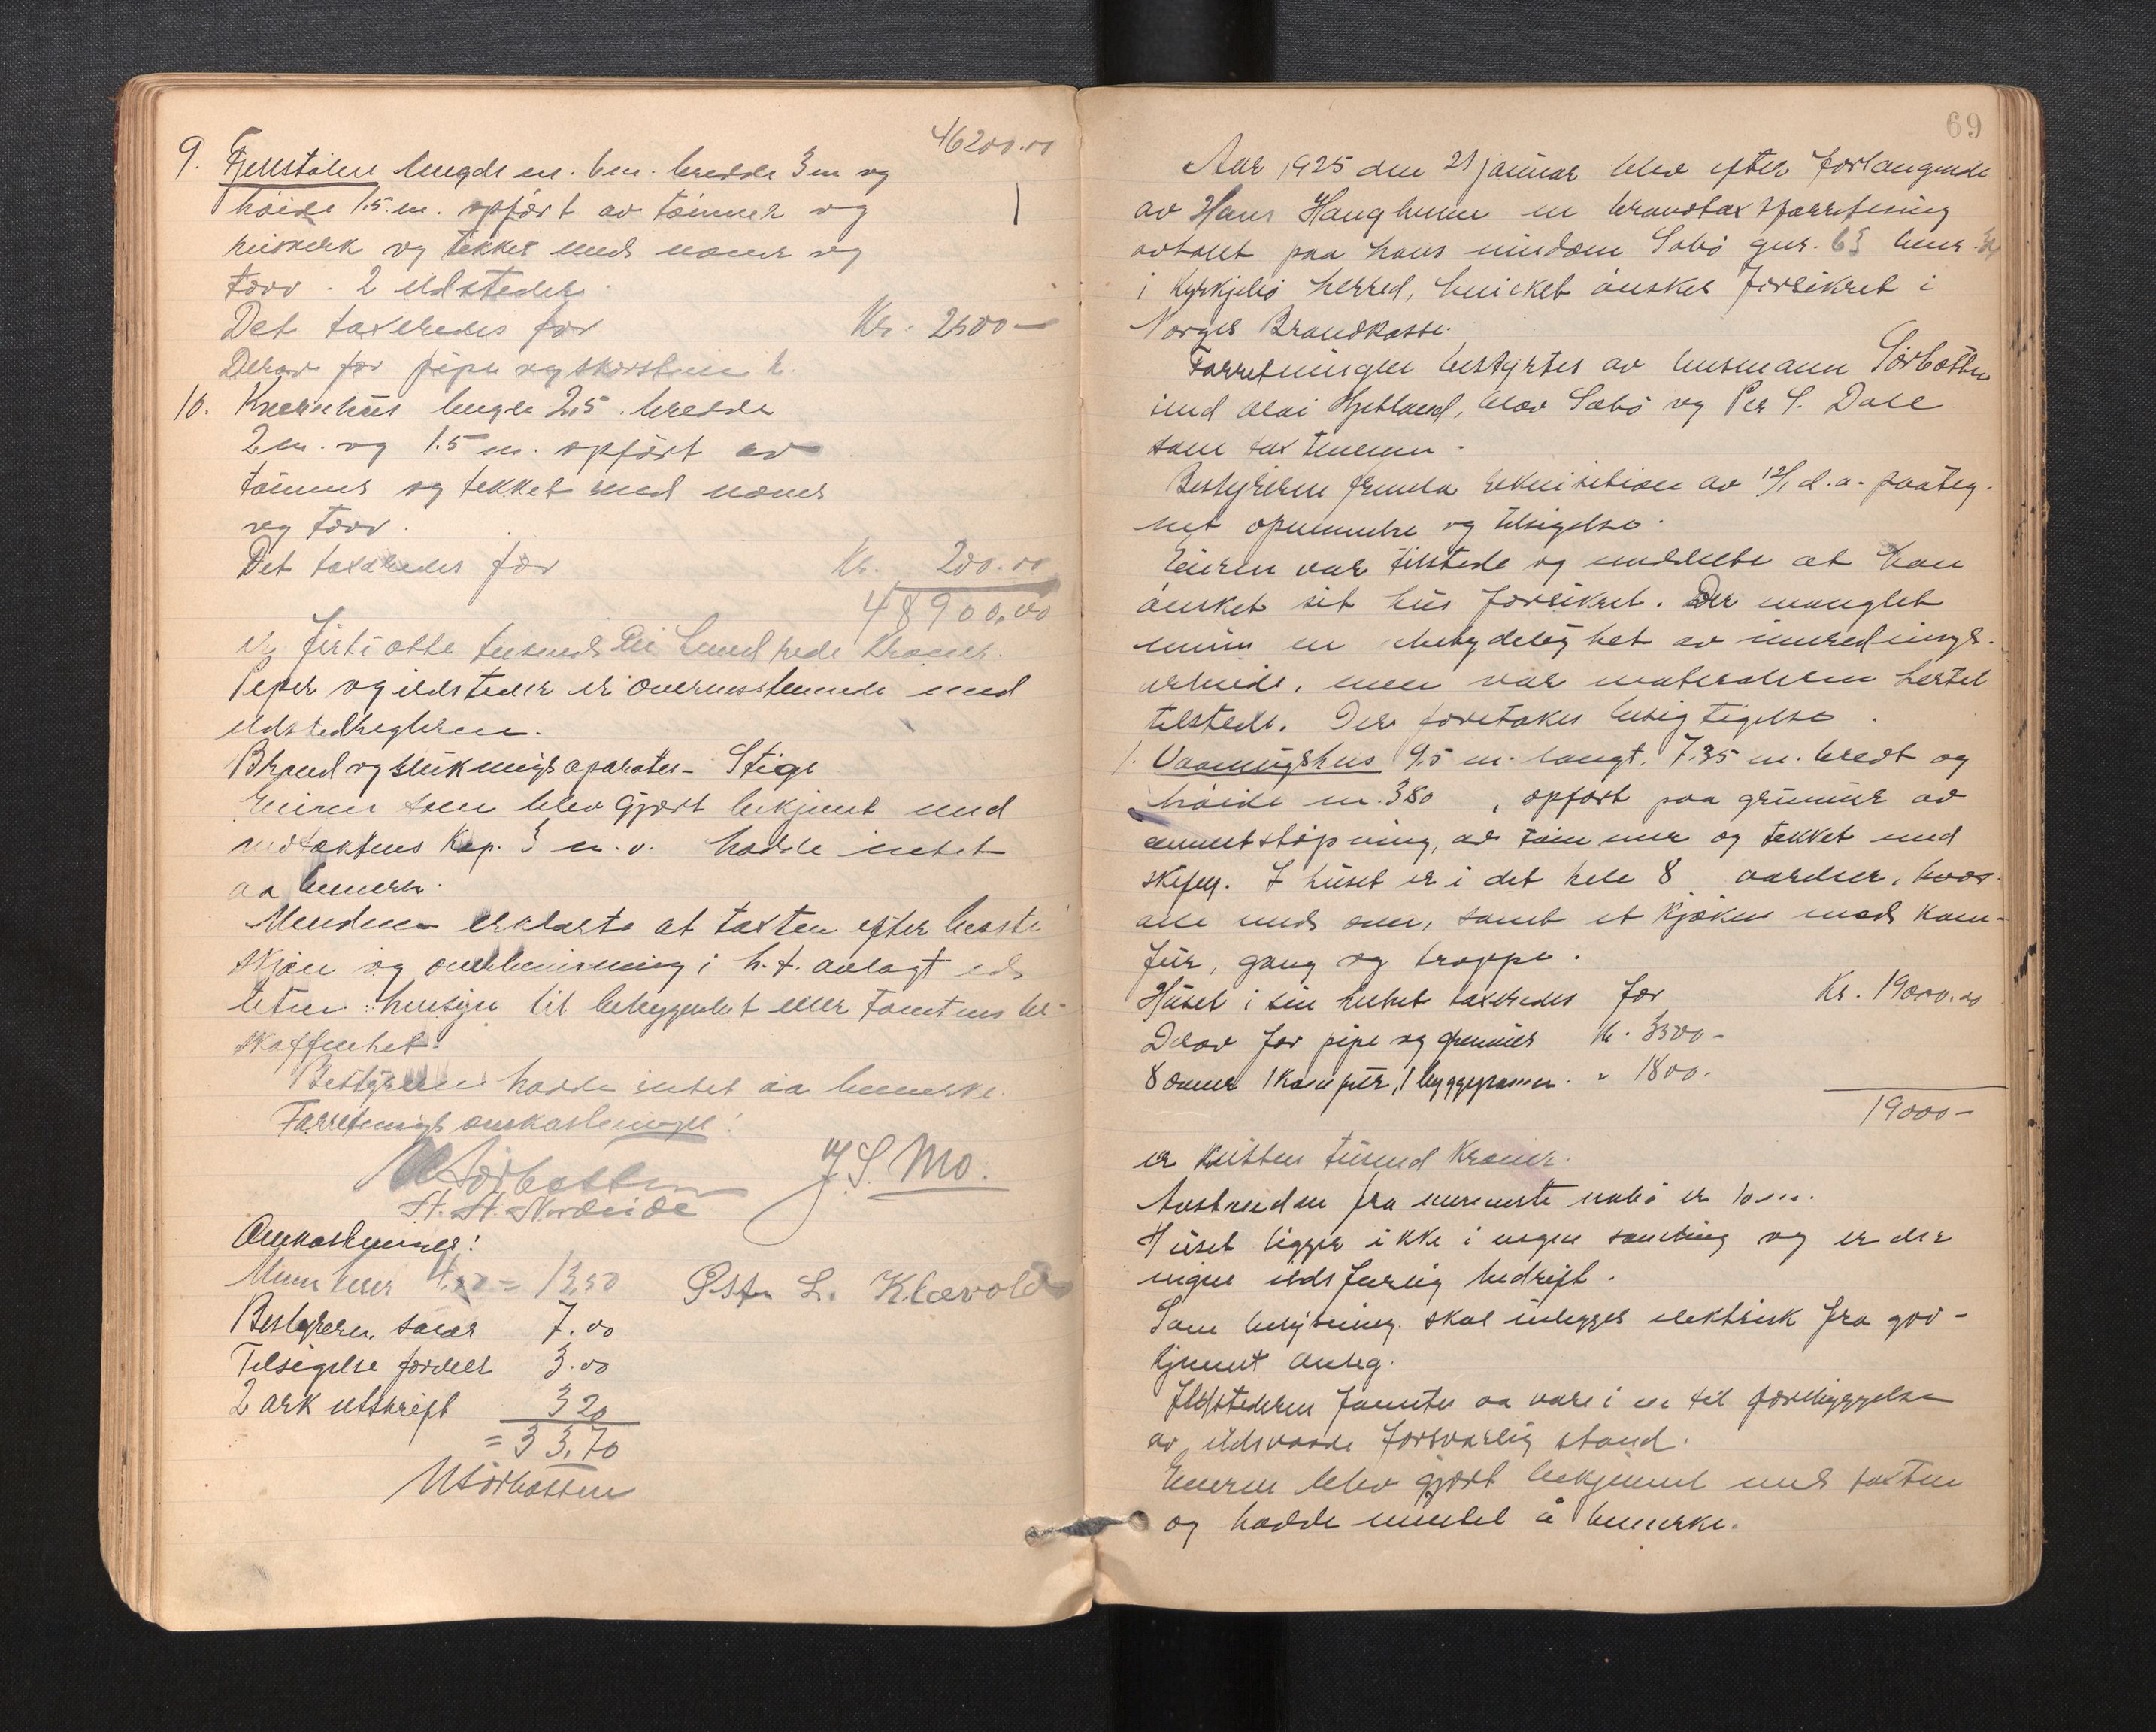 46200.00
9. Fjellstølen lengde m. 6 m. bredde 3 m og
høide 1.5. m. opført av tømmer og
reisverk og tekket med næver og
torv. 2 ildsteder.
Det taxeredes for Kr. 2500 —
Derav for pipe og skorstein k.
10. Kvernhus lengde 2,5. bredde
2 m. og 1.5 m. opført av
tømmer og tekket med næver
og torv.
Det taxeredes for Kr. 200.00
48900.00
er førti otte tusend ni hundrede kroner.
Piper og ildsteder er overensstemmende med
ildstedreglerne.
Brand og slukningsaparater - Stige
Eieren som blev gjort bekjent med
vedtektens Kap. 3 m. v. hadde intet
aa bemerke.
Mendene erklærte at taxten efter beste
skjøn og overbevisning i h. t. avlagt ed
uten hensyn til bebyggelset eller tomtens be-
skaffenhet.
Bestyreren hadde intet aa bemerke.
Forretningens omkostninger!
M Sørbotten J. S. Mo.
H. H. Nordeide
Omkostninger!
Mennene 4.50 = 13,50 L. Klævold
Bestyreren salær 7.00
Tilsigelse fordelt 3.00
2 ark utskrift 3 20
= 33,70
M Sørbotten
69
Aar 1925 den 21 januar blev efter forlangende
av Hans Haughunn en brandtaxtforretning
avholdt paa hans eiendom Sæbø gnr. 63 bnr.
i Kyrkjebø herred, hvilket ønskes forsikret i
Norges Brandkasse.
Forretningen bestyrtes av lensmann Sørbotten
med Olai Hjetland, Olav Sæbø og Per S. Dale
som taxtmenn -
Bestyreren fremla rekvisition av 12/1 d.a. paateg-
net opnevnelse og tilsigelse.
Eieren var tilstede og meddelte at han
ønsket sit hus forsikret. Der manglet
ennu en ubetydelighet av innrednings-
arbeide, men var materialerne hertil
tilstede. Der foretokes besigtigelse.
1. Vaaningshus 9.5 m. langt, 7.35 m. bredt og
høide m. 380, opført paa grunmur av
cementstøpning, av tømmer og tekket med
skifer. I huset er i det hele 8 værelser, hvor-
alle med ovn, samt et kjøken med kom-
fur, gang og trappe.
Huset i sin helhet taxeredes for Kr. 19000.00
Derav for pipe og grunmur k. 3500 -
8 ovner 1 komfur, 1 bryggepanne. " 1800.
19000 -
er nitten tusend kroner.
Avstanden fra nermeste nabo er 10 m.
Huset ligger ikke i nogen samling og er der
ingen ildsfarlig bedrift.
Som belysning skal inlegges elektrisk fra god-
kjennt anleg.
Ildstederne fanntes aa vere i en til forebyggelse
av ildsvaade forsvarlig stand.
Eieren blev gjort bekjennt med taxten
og hadde inntet å bemerke.